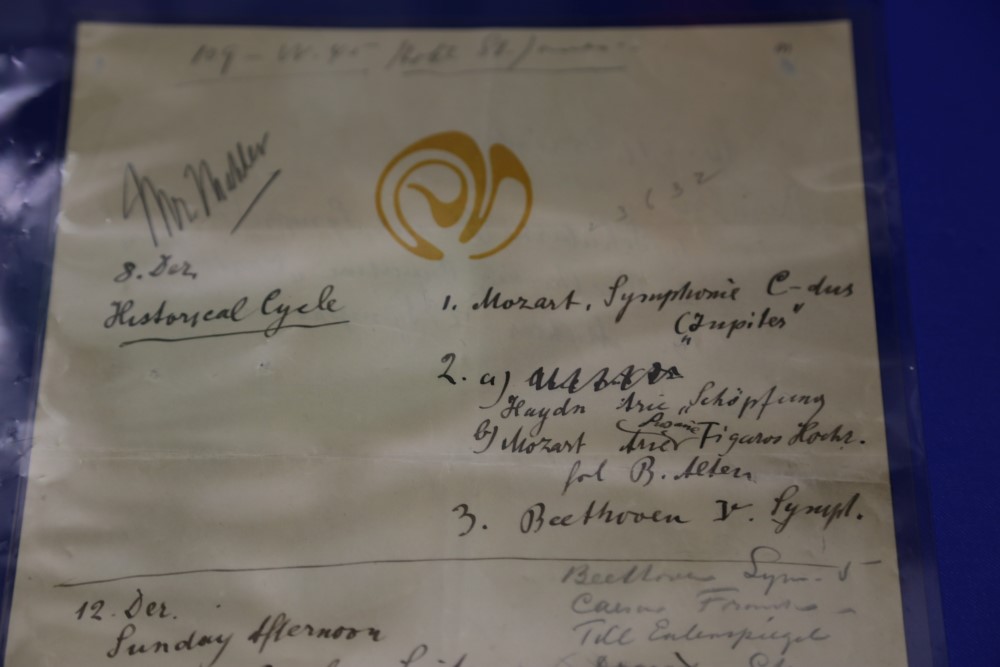 109 - W. 45 Hotel St. James
Mr Mahler
8. Dez.
Historical Cycle
1. Mozart. Symphonie C-dur
("Jupiter"
2. a)
Haydn Arie „Schöpfung
b) Mozart Arie Figaros Hochz.
frl B. Alten
3. Beethoven V. Sympt.
12. Dez.
Sunday Afternoon
Beethoven Sym. 5
Till Eulenspiegel